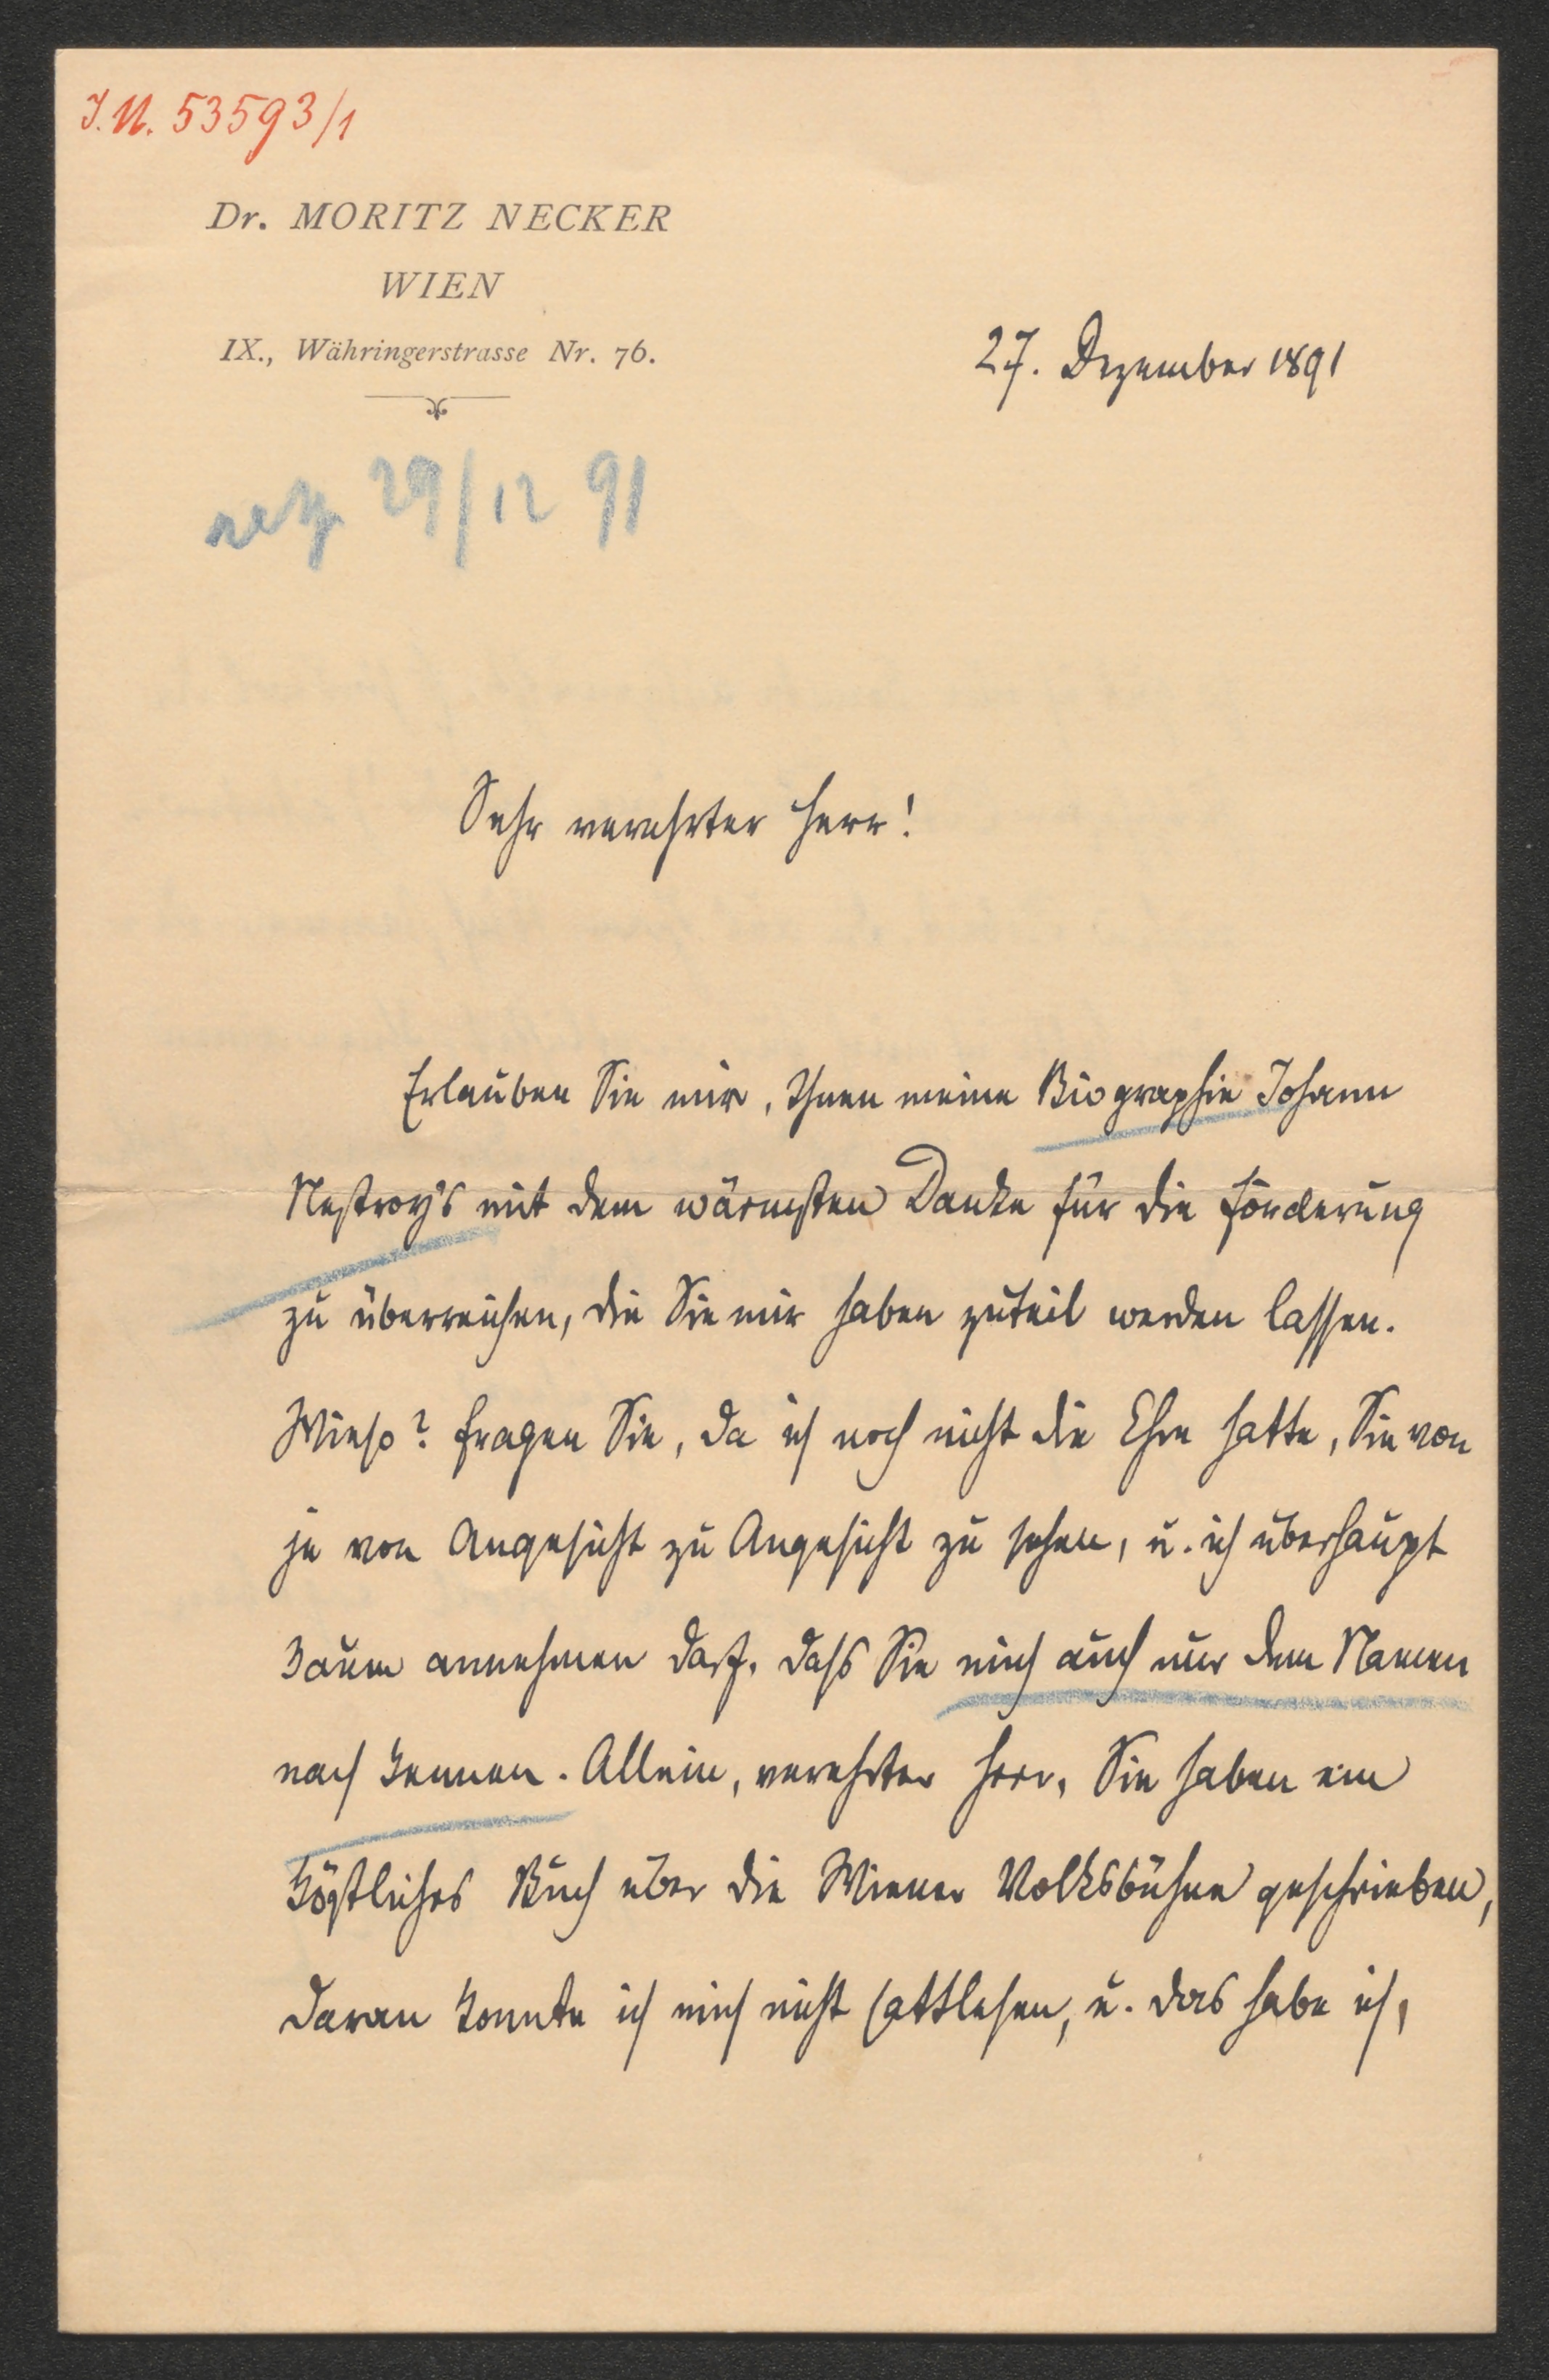 J.N. 53593/1
Dr. MORITZ NECKER
WIEN
IX., Währingerstrasse Nr. 76.
27. Dezember 1891
29/12 91
Sehr verehrter Herr!
Erlauben Sie mir, Ihnen meine Biographie Johann
Nestroy's mit dem wärmsten Danke für die Förderung
zu überreichen, die Sie mir haben zuteil werden lassen.
Wieso? fragen Sie, da ich noch nicht die Ehre hatte, Sie von
je von Angesicht zu Angesicht zu sehen, u. ich überhaupt
kaum annehmen darf, dass Sie mich auch nur dem Namen
nach kennen. Allein, verehrter Herr, Sie haben ein
köstliches Buch über die Wiener Volksbühne geschrieben,
daran konnte ich mich nicht sattlesen, u. das habe ich,